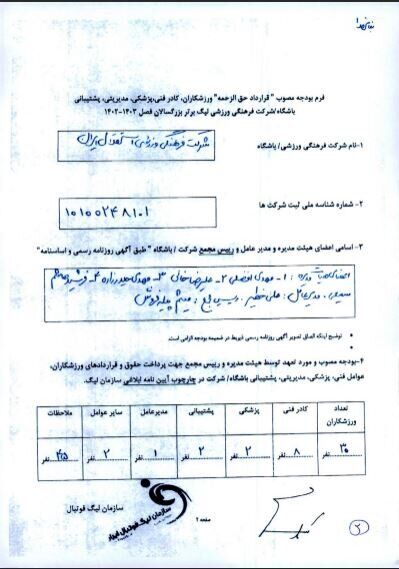 فرم بودجه مصوب " قرارداد حق الزحمه" ورزشکاران، کادر فنی،پزشکی، مدیریتی، پشتیبانی
باشگاه/شرکت فرهنگی ورزشی لیگ برتر بزرگسالان فصل ۱۴۰۳-۱۴۰۲
۱-نام شرکت فرهنگی ورزشی/ باشگاه
شرکت فرهنگی ورزشی استقلال ایران
۲- شماره شناسه ملی ثبت شرکت ها
۱۰۱۰۰۲۴۸۱۰۱
۳- اسامی اعضای هیئت مدیره و مدیر عامل و رییس مجمع شرکت / باشگاه " طبق آگهی روزنامه رسمی و اساسنامه"
اعضای هیات مدیره : ۱- مهدی افضلی ۲- علیرضا ۳- مهدی ۴- فرشید
مدیرعامل : علی خطیر
توضیح اینکه الصاق تصویر آگهی روزنامه رسمی ذیربط در ضمیمه بودجه الزامی است.
۴-بودجه مصوب و مورد تعهد توسط هیئت مدیره و رییس مجمع جهت پرداخت حقوق و قراردادهای ورزشکاران،
عوامل فنی، پزشکی، مدیریتی، پشتیبانی باشگاه/ شرکت در چارچوب آیین نامه ابلاغی سازمان لیگ.
تعداد ورزشکاران کادر فنی پزشکی پشتیبانی مدیرعامل سایر عوامل ملاحظات
۳۰ نفر ۸ نفر ۲ نفر ۲ نفر ۱ نفر ۲ نفر ۴۵ نفر
سازمان لیگ فوتبال
سازمان لیگ فوتبال ایران
صفحه ۱